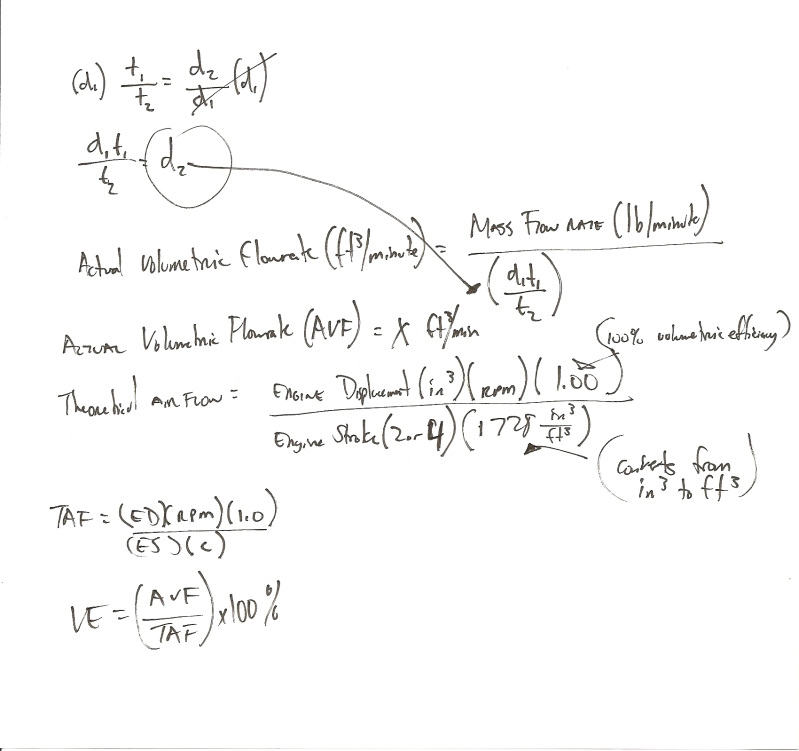 (d₁) t₁/t₂ = d₂/d₁ (d₁)
d₁t₁/t₂ = d₂
Actual Volumetric Flowrate (ft³/minute) = Mass Flow Rate (lb/minute) / (d₁t₁/t₂)
Actual Volumetric Flowrate (AVF) = X ft³/min
(100% volumetric efficiency)
Theoretical Air Flow = Engine Displacement (in³)(rpm)(1.00) / Engine Stroke (2 or 4)(1728 in³/ft³)
(converts from
in³ to ft³)
TAF = (ED)(rpm)(1.0) / (ES)(C)
VE = (AVF/TAF) x 100%